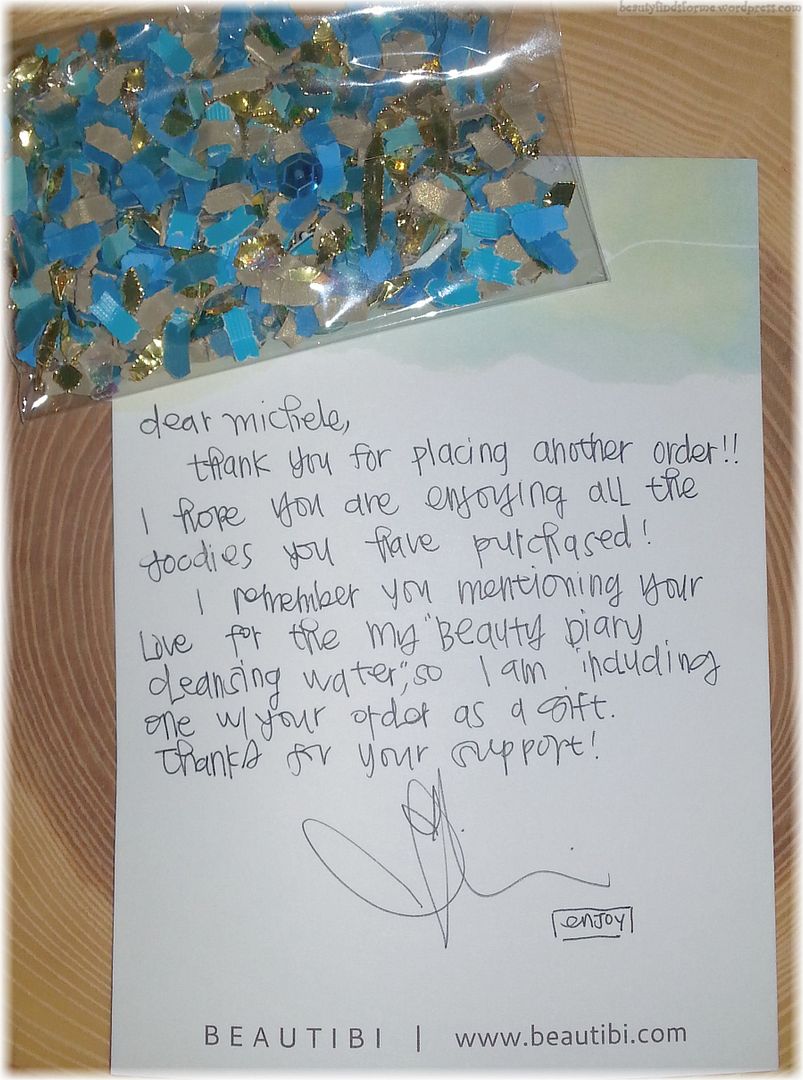 beautyfindsforme.wordpress.com
dear michele,
thank you for placing another order!!
I hope you are enjoying all the
goodies you have purchased!
I remember you mentioning your
Love for the my "Beauty Diary
cleansing water", so I am including
one w/ your order as a Gift.
Thanks for your support!
enjoy
BEAUTIBI | www.beautibi.com